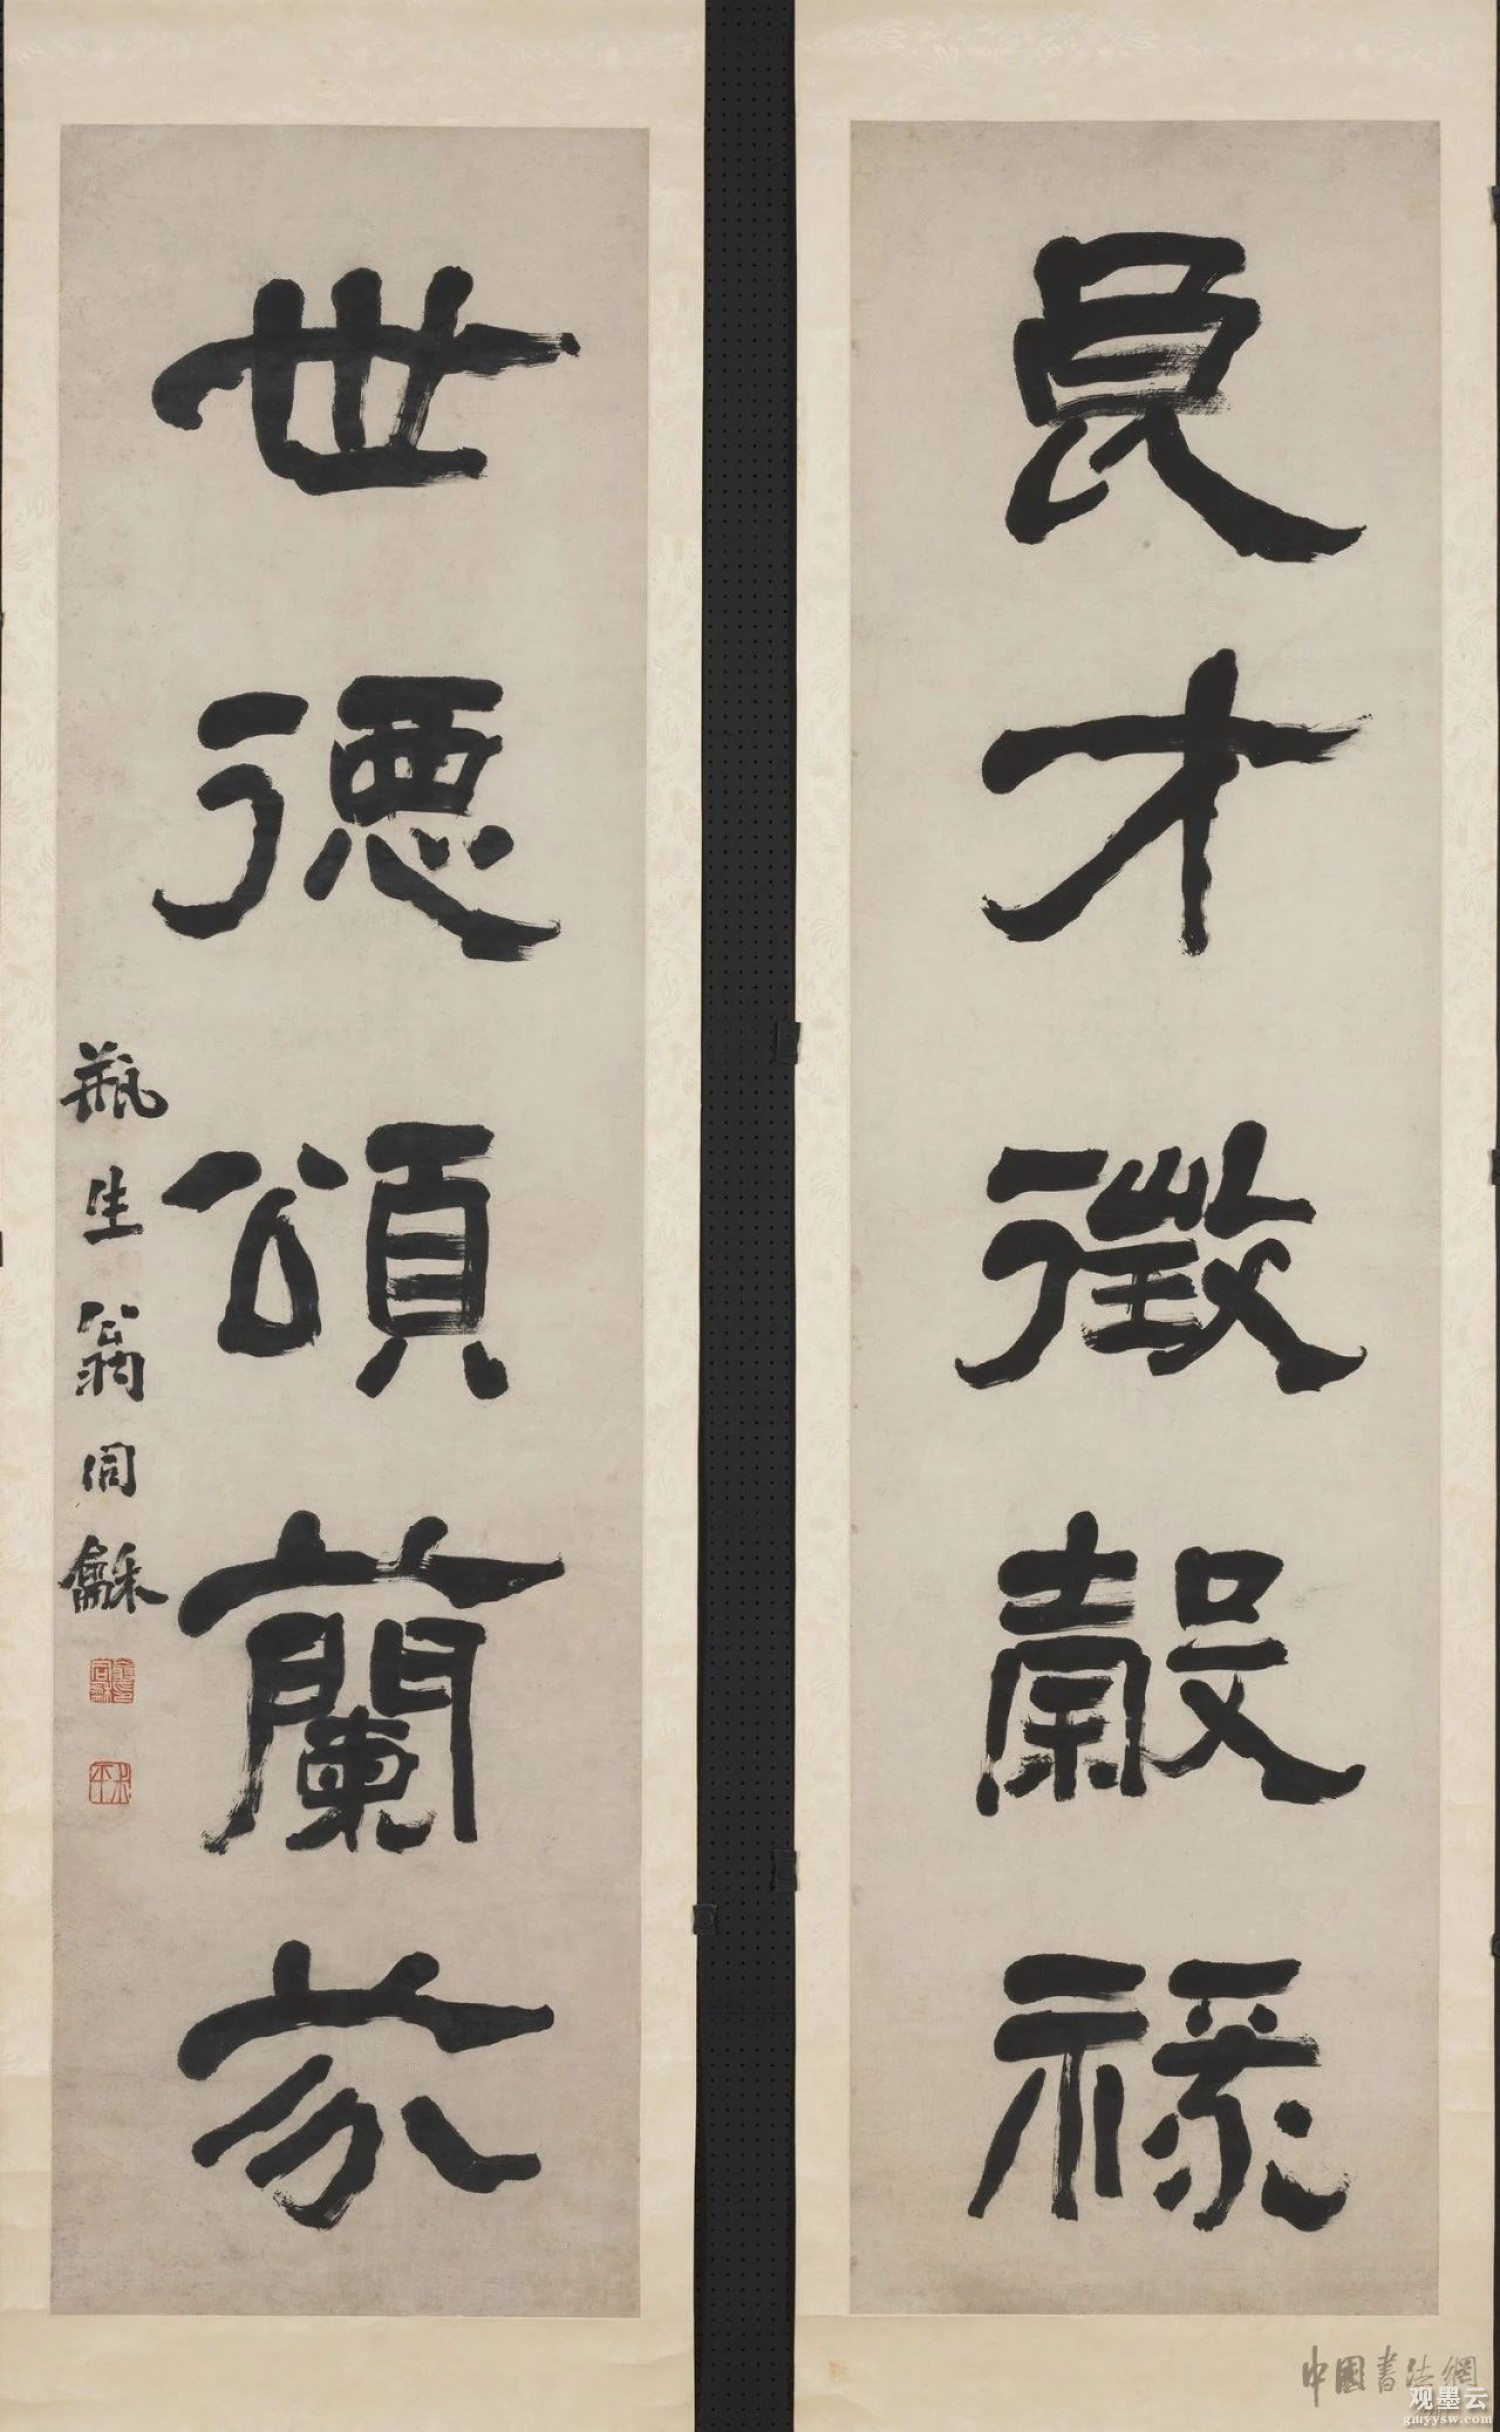 良才徵穀祿
世德頌蘭芬
瓶生翁同龢
翁同龢印
叔平
中國書法網
观墨云
gmyysw.com